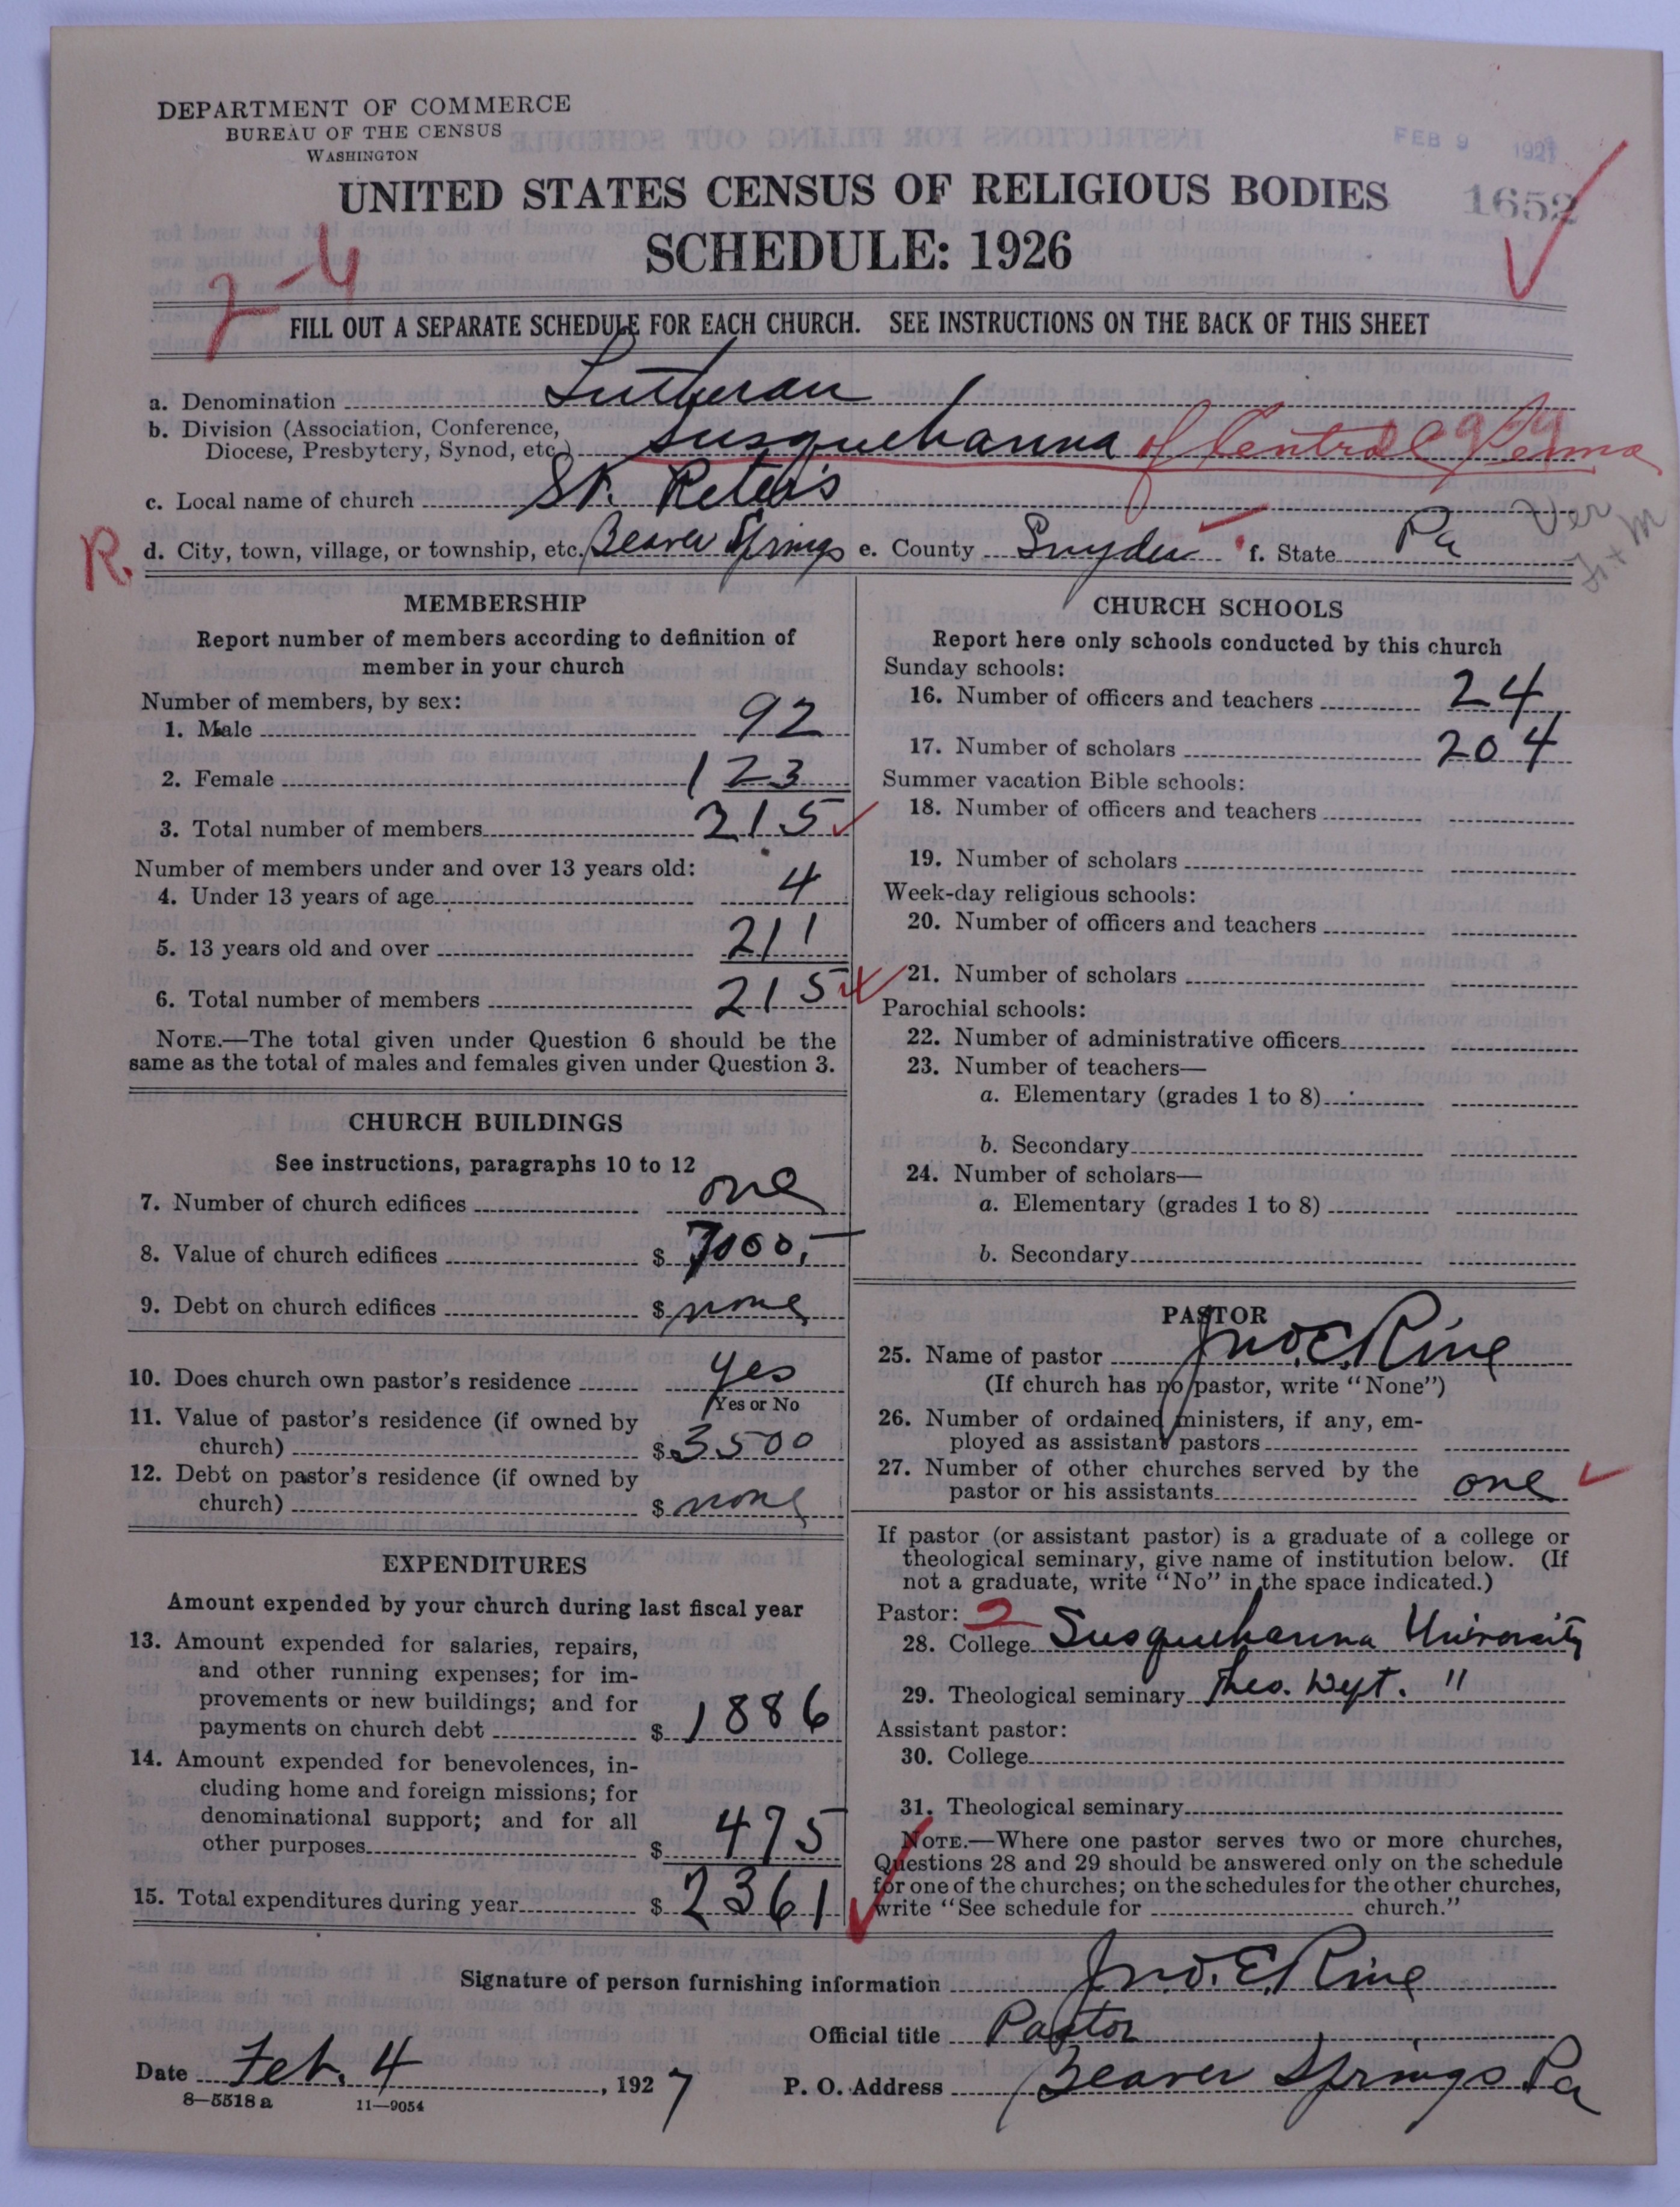 DEPARTMENT OF COMMERCE
BUREAU OF THE CENSUS
WASHINGTON
FEB 9 1927
UNITED STATES CENSUS OF RELIGIOUS BODIES
1652
SCHEDULE: 1926
7-4
FILL OUT A SEPARATE SCHEDULE FOR EACH CHURCH. SEE INSTRUCTIONS ON THE BACK OF THIS SHEET
a. Denomination Lutheran
b. Division (Association, Conference,
Diocese, Presbytery, Synod, etc.) Susquehanna of Central Penna
c. Local name of church St. Peter's
R.
d. City, town, village, or township, etc. Beaver Springs e. County Snyder f. State Pa
Ver
MEMBERSHIP
Report number of members according to definition of
member in your church
Number of members, by sex:
1. Male 92
2. Female 123
3. Total number of members 215
Number of members under and over 13 years old:
4. Under 13 years of age 4
5. 13 years old and over 211
6. Total number of members 215
NOTE.—The total given under Question 6 should be the
same as the total of males and females given under Question 3.
CHURCH BUILDINGS
See instructions, paragraphs 10 to 12
7. Number of church edifices one
8. Value of church edifices $ 7000,—
9. Debt on church edifices $ none
10. Does church own pastor's residence yes
Yes or No
11. Value of pastor's residence (if owned by
church) $ 3500
12. Debt on pastor's residence (if owned by
church) $ none
EXPENDITURES
Amount expended by your church during last fiscal year
13. Amount expended for salaries, repairs,
and other running expenses; for im-
provements or new buildings; and for
payments on church debt $ 1886
14. Amount expended for benevolences, in-
cluding home and foreign missions; for
denominational support; and for all
other purposes $ 475
15. Total expenditures during year $ 2361
CHURCH SCHOOLS
Report here only schools conducted by this church
Sunday schools:
16. Number of officers and teachers 24
17. Number of scholars 204
Summer vacation Bible schools:
18. Number of officers and teachers
19. Number of scholars
Week-day religious schools:
20. Number of officers and teachers
21. Number of scholars
Parochial schools:
22. Number of administrative officers
23. Number of teachers—
a. Elementary (grades 1 to 8)
b. Secondary
24. Number of scholars—
a. Elementary (grades 1 to 8)
b. Secondary
PASTOR
25. Name of pastor Jno. E. Rine
(If church has no pastor, write "None")
26. Number of ordained ministers, if any, em-
ployed as assistant pastors
27. Number of other churches served by the
pastor or his assistants one
If pastor (or assistant pastor) is a graduate of a college or
theological seminary, give name of institution below. (If
not a graduate, write "No" in the space indicated.)
Pastor: 2
28. College Susquehanna University
29. Theological seminary Theo. Dept. "
Assistant pastor:
30. College
31. Theological seminary
NOTE.—Where one pastor serves two or more churches,
Questions 28 and 29 should be answered only on the schedule
for one of the churches; on the schedules for the other churches,
write "See schedule for church."
Signature of person furnishing information Jno. E. Rine
Official title Pastor
Date Feb. 4, 1927
P. O. Address Beaver Springs Pa
8—5518 a 11—9054